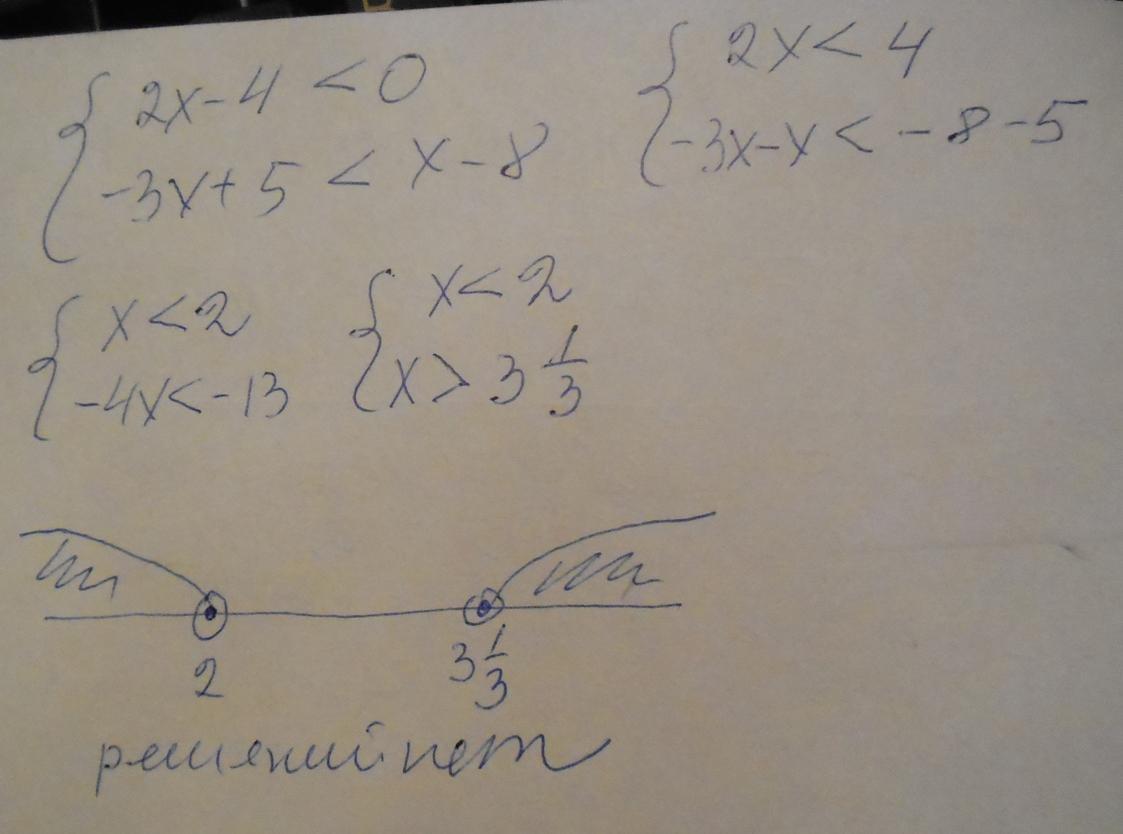 { 2x-4 < 0
-3x+5 < x-8
{ 2x < 4
-3x-x < -8-5
{ x < 2
-4x < -13
{ x < 2
x > 3 1/3
2 3 1/3
решений нет